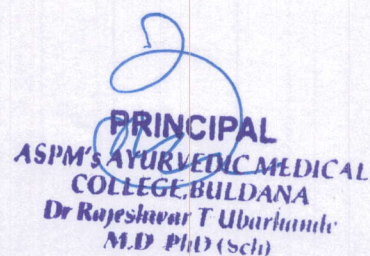 PRINCIPAL
ASPM's AYURVEDIC MEDICAL
COLLEGE, BULDANA
Dr Rajeshwar T Ubarhande
M.D PhD (Sch)